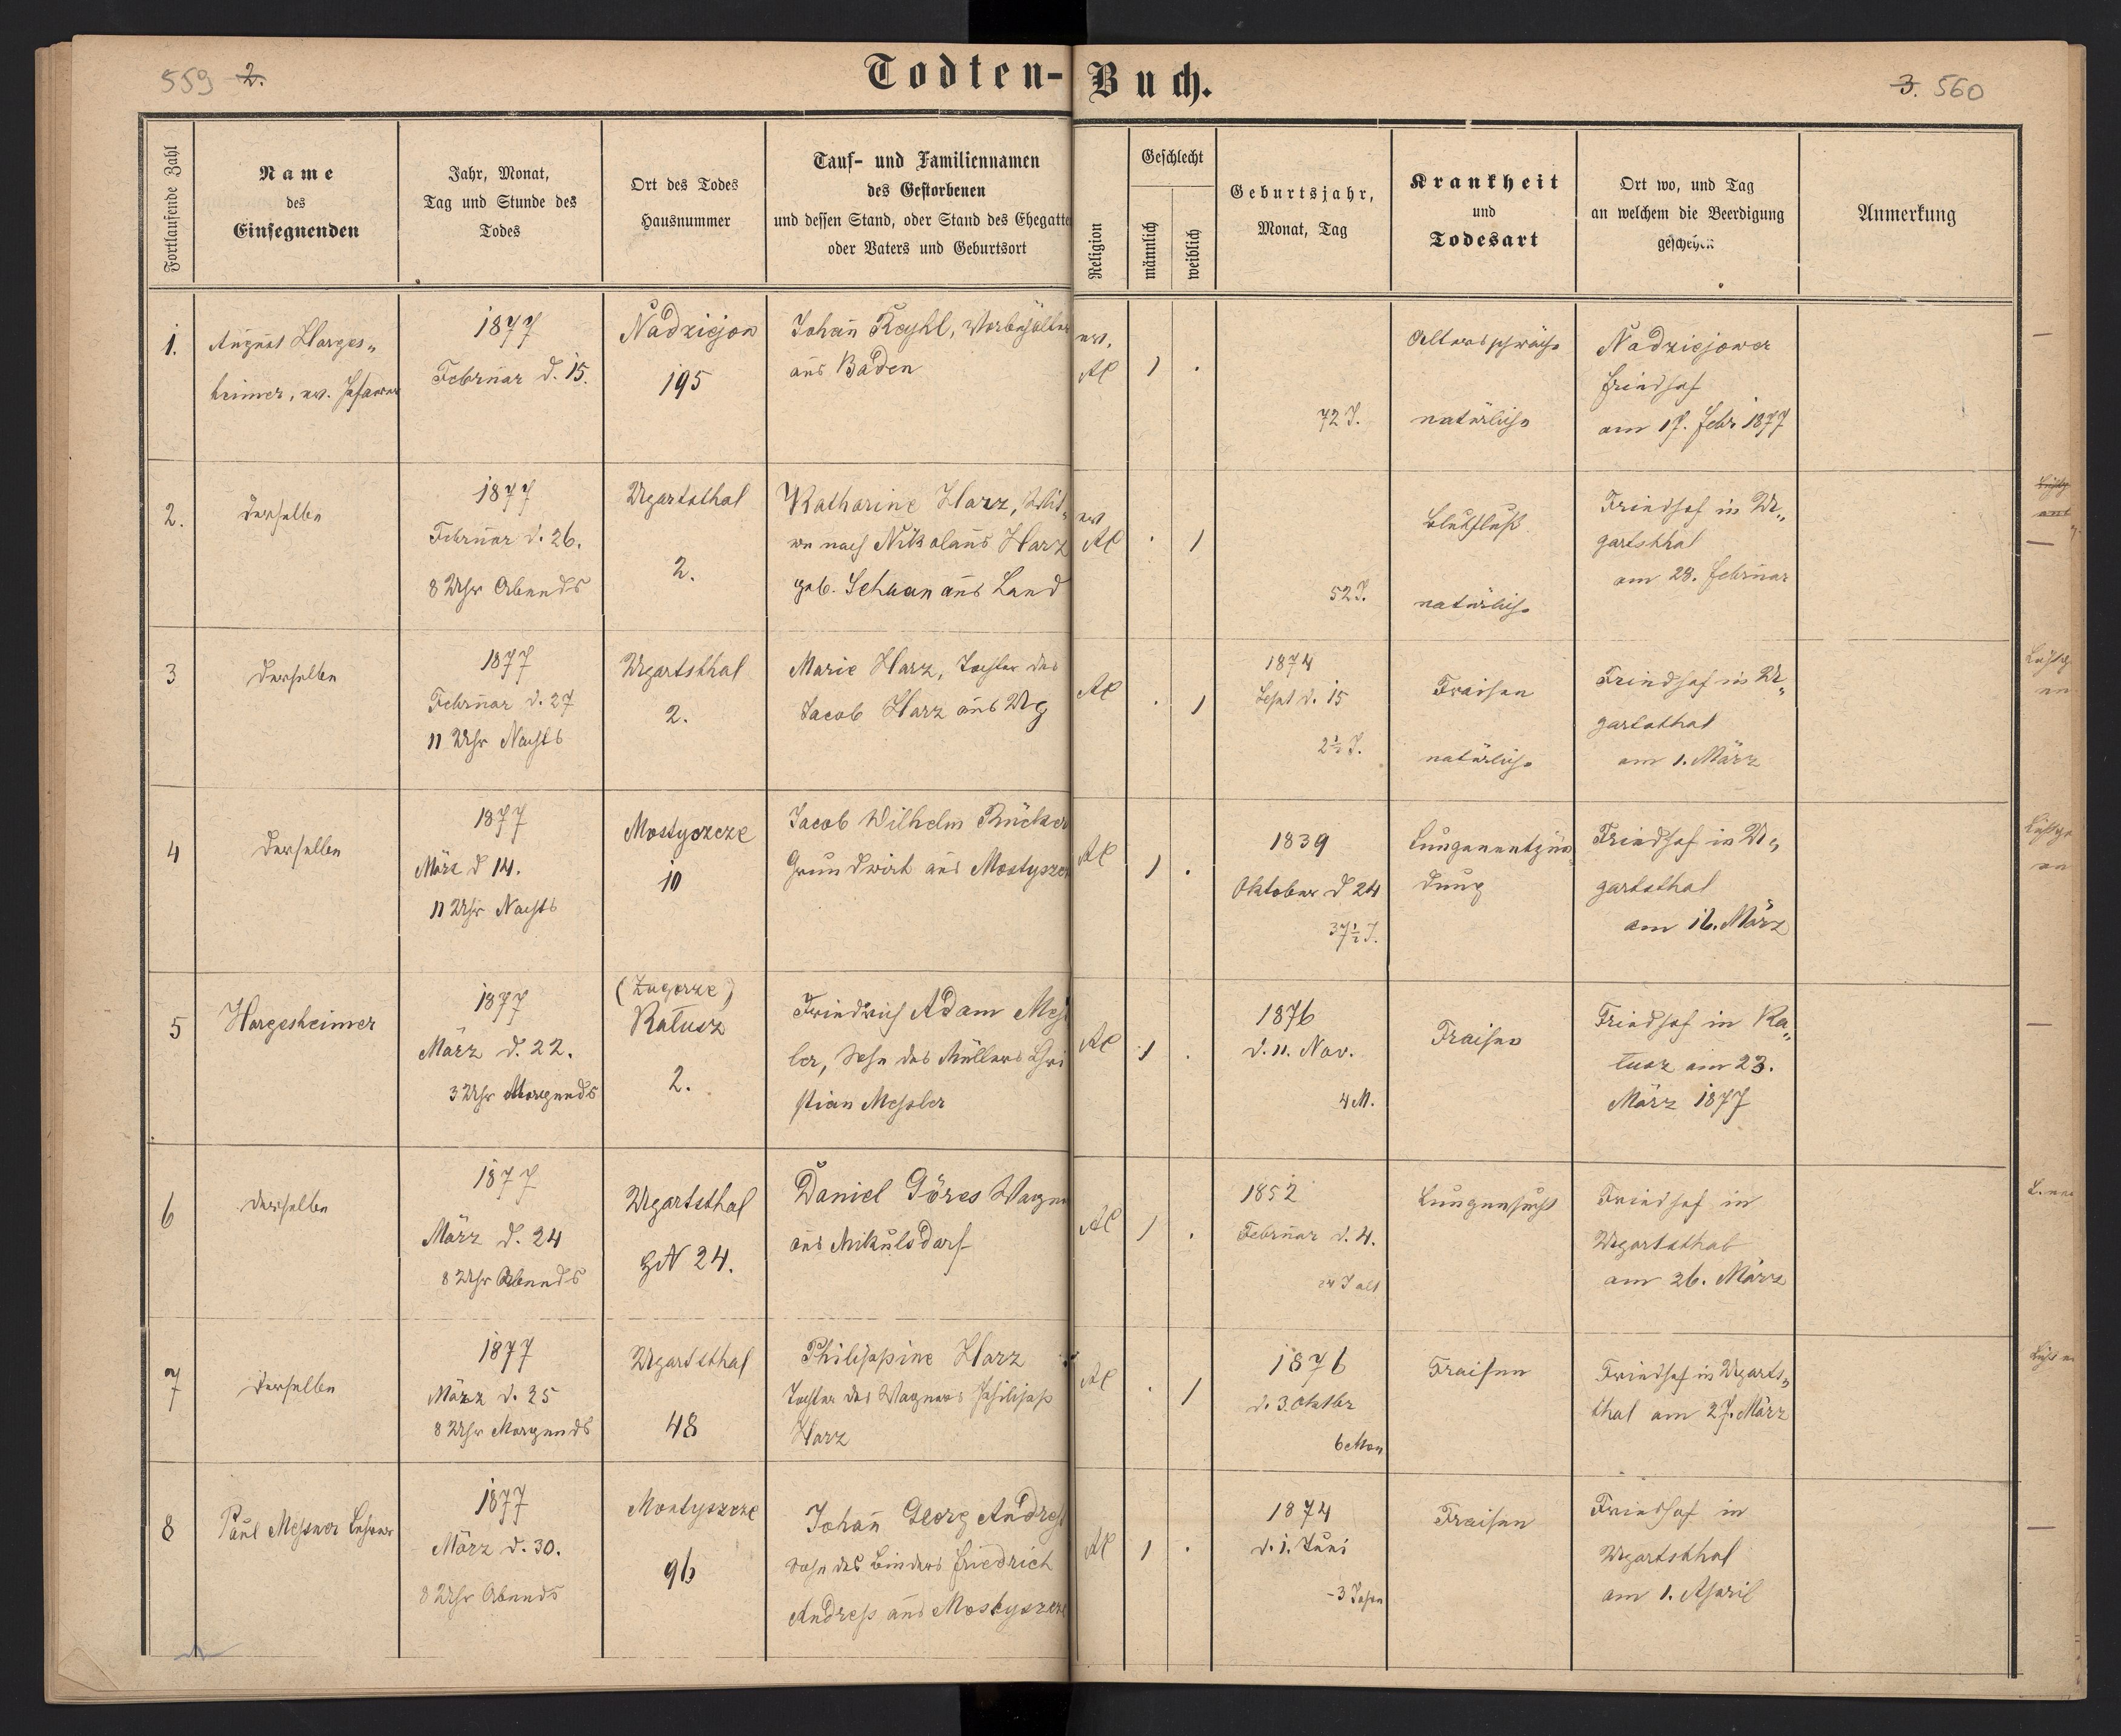 559 2.
Todten-Buch.
3. 560
Fortlaufende Zahl
Name
des
Einsegnenden
Jahr, Monat,
Tag und Stunde des
Todes
Ort des Todes
Hausnummer
Tauf- und Familiennamen
des Gestorbenen
und dessen Stand, oder Stand des Ehegatten
oder Vaters und Geburtsort
Religion
Geschlecht
männlich
weiblich
Geburtsjahr,
Monat, Tag
Krankheit
und
Todesart
Ort wo, und Tag
an welchem die Beerdigung
geschehen
Anmerkung
1.
August Harges„
heimer, ev. Pfarrer
1877
Februar d. 15.
Nadziejow
195
Johañ Keyhl,
aus Baden
ev.
AC
1 .
72 J.
Altersschwäche
natürliche
Nadziejower
Friedhof
am 17. Febr 1877
—
2.
Derselbe
1877
Februar d. 26.
8 Uhr Abends
Ugartsthal
2.
Katharine Harz, Wit„
we nach Nikolaus Harz
geb. Schaan aus Land
ev
AC
. 1
52 J.
Blutfluß
natürliche
Friedhof in U„
gartsthal
am 28. Februar
—
3
Derselbe
1877
Februar d. 27
11 Uhr Nachts
Ugartsthal
2.
Marie Harz, Tochter des
Jacob Harz aus Ug
AC
. 1
1874
Sept d. 15
2½ J.
Fraisen
natürliche
Friedhof in U„
gartsthal
am 1. März
4
Derselbe
1877
März d 14.
11 Uhr Nachts
Mostyszcze
10
Jacob Wilhelm Rücker
Grundwirth aus Mostyszcz
AC
1 .
1839
Oktober d 24
37½ J.
Lungenentzün
dung
Friedhof in U„
gartsthal
am 16. März
5
Hargesheimer
1877
März d. 22.
3 Uhr Morgends
(Zagorze)
Kałusz
2.
Friedrich Adam Meß
ler, Sohn des Müllers Chri
stian Messler
AC
1 .
1876
d. 11. Nov.
4 M.
Fraisen
Friedhof in Ka„
lusz am 23.
März 1877
—
6
Derselbe
1877
März d. 24
8 Uhr Abends
Ugartsthal
24.
Daniel Göres Wagn
aus Mikulsdorf
AC
1 .
1852
Februar d. 4.
24 J alt
Lungensucht
Friedhof in
Ugartsthal
am 26. März
7
Derselbe
1877
März d. 25
8 Uhr Morgends
Ugartsthal
48
Philippine Harz
Tochter des Wagners Philipp
Harz
AC
. 1
1876
d. 3. Oktbr
6 Mon
Fraisen
Friedhof in Ugarts„
thal am 27. März
8
Paul Meßner Lehrer
1877
März d. 30.
8 Uhr Abends
Mostyszcze
96
Johañ Georg Andreß
Sohn des Binders Friedrich
Andreß aus Mostyszcze
AC
1 .
1874
d. 1. Juni
-3 Jahre
Fraisen
Friedhof in
Ugartsthal
am 1. April
—